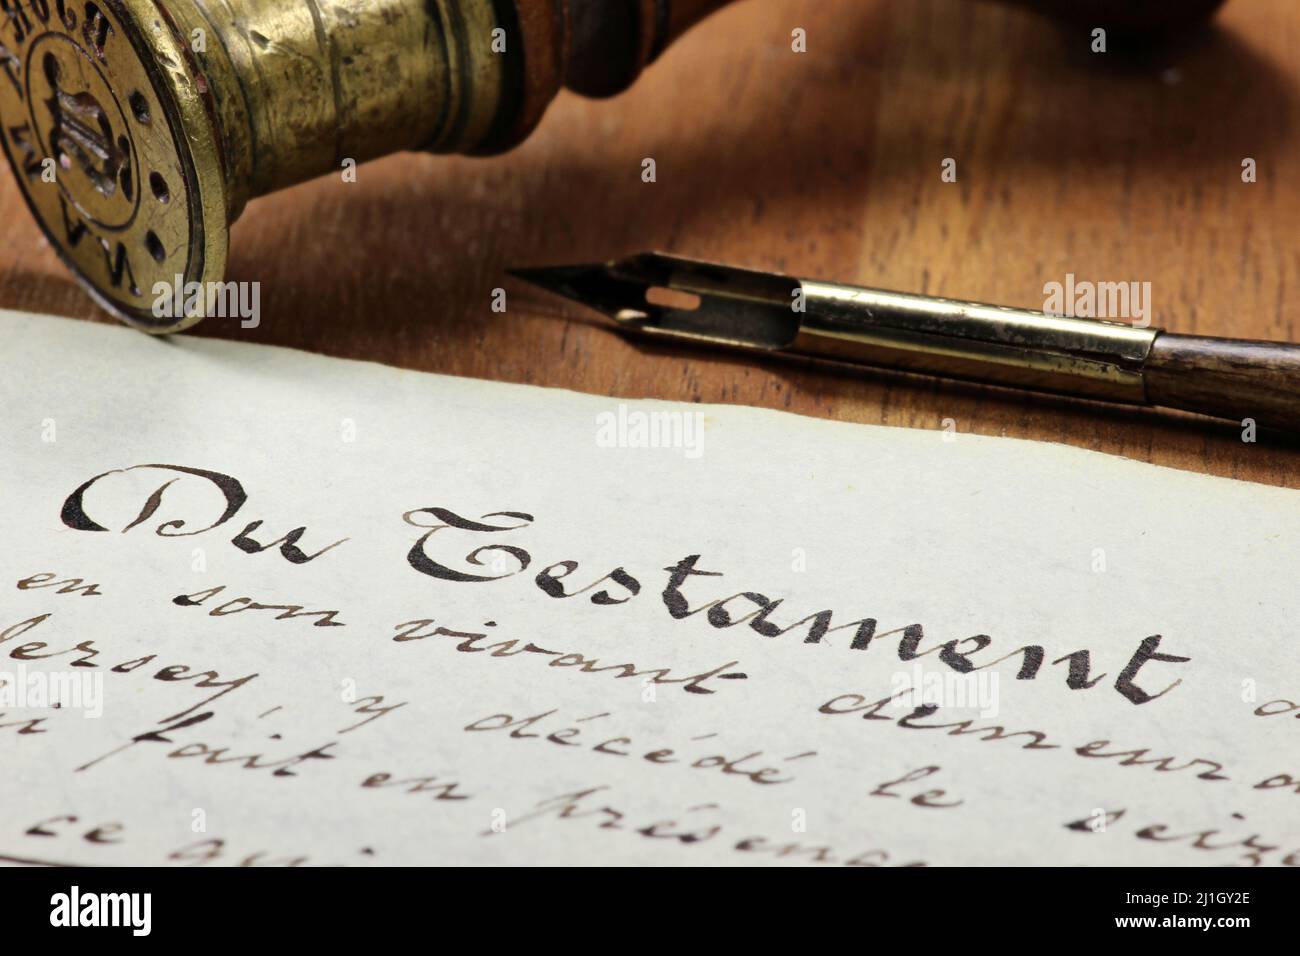 Du Testament
en son vivant demeur
Jersey, y décédé le seize
fait en présence
ce qui
alamy
Image ID: 2J1GY2E
www.alamy.com